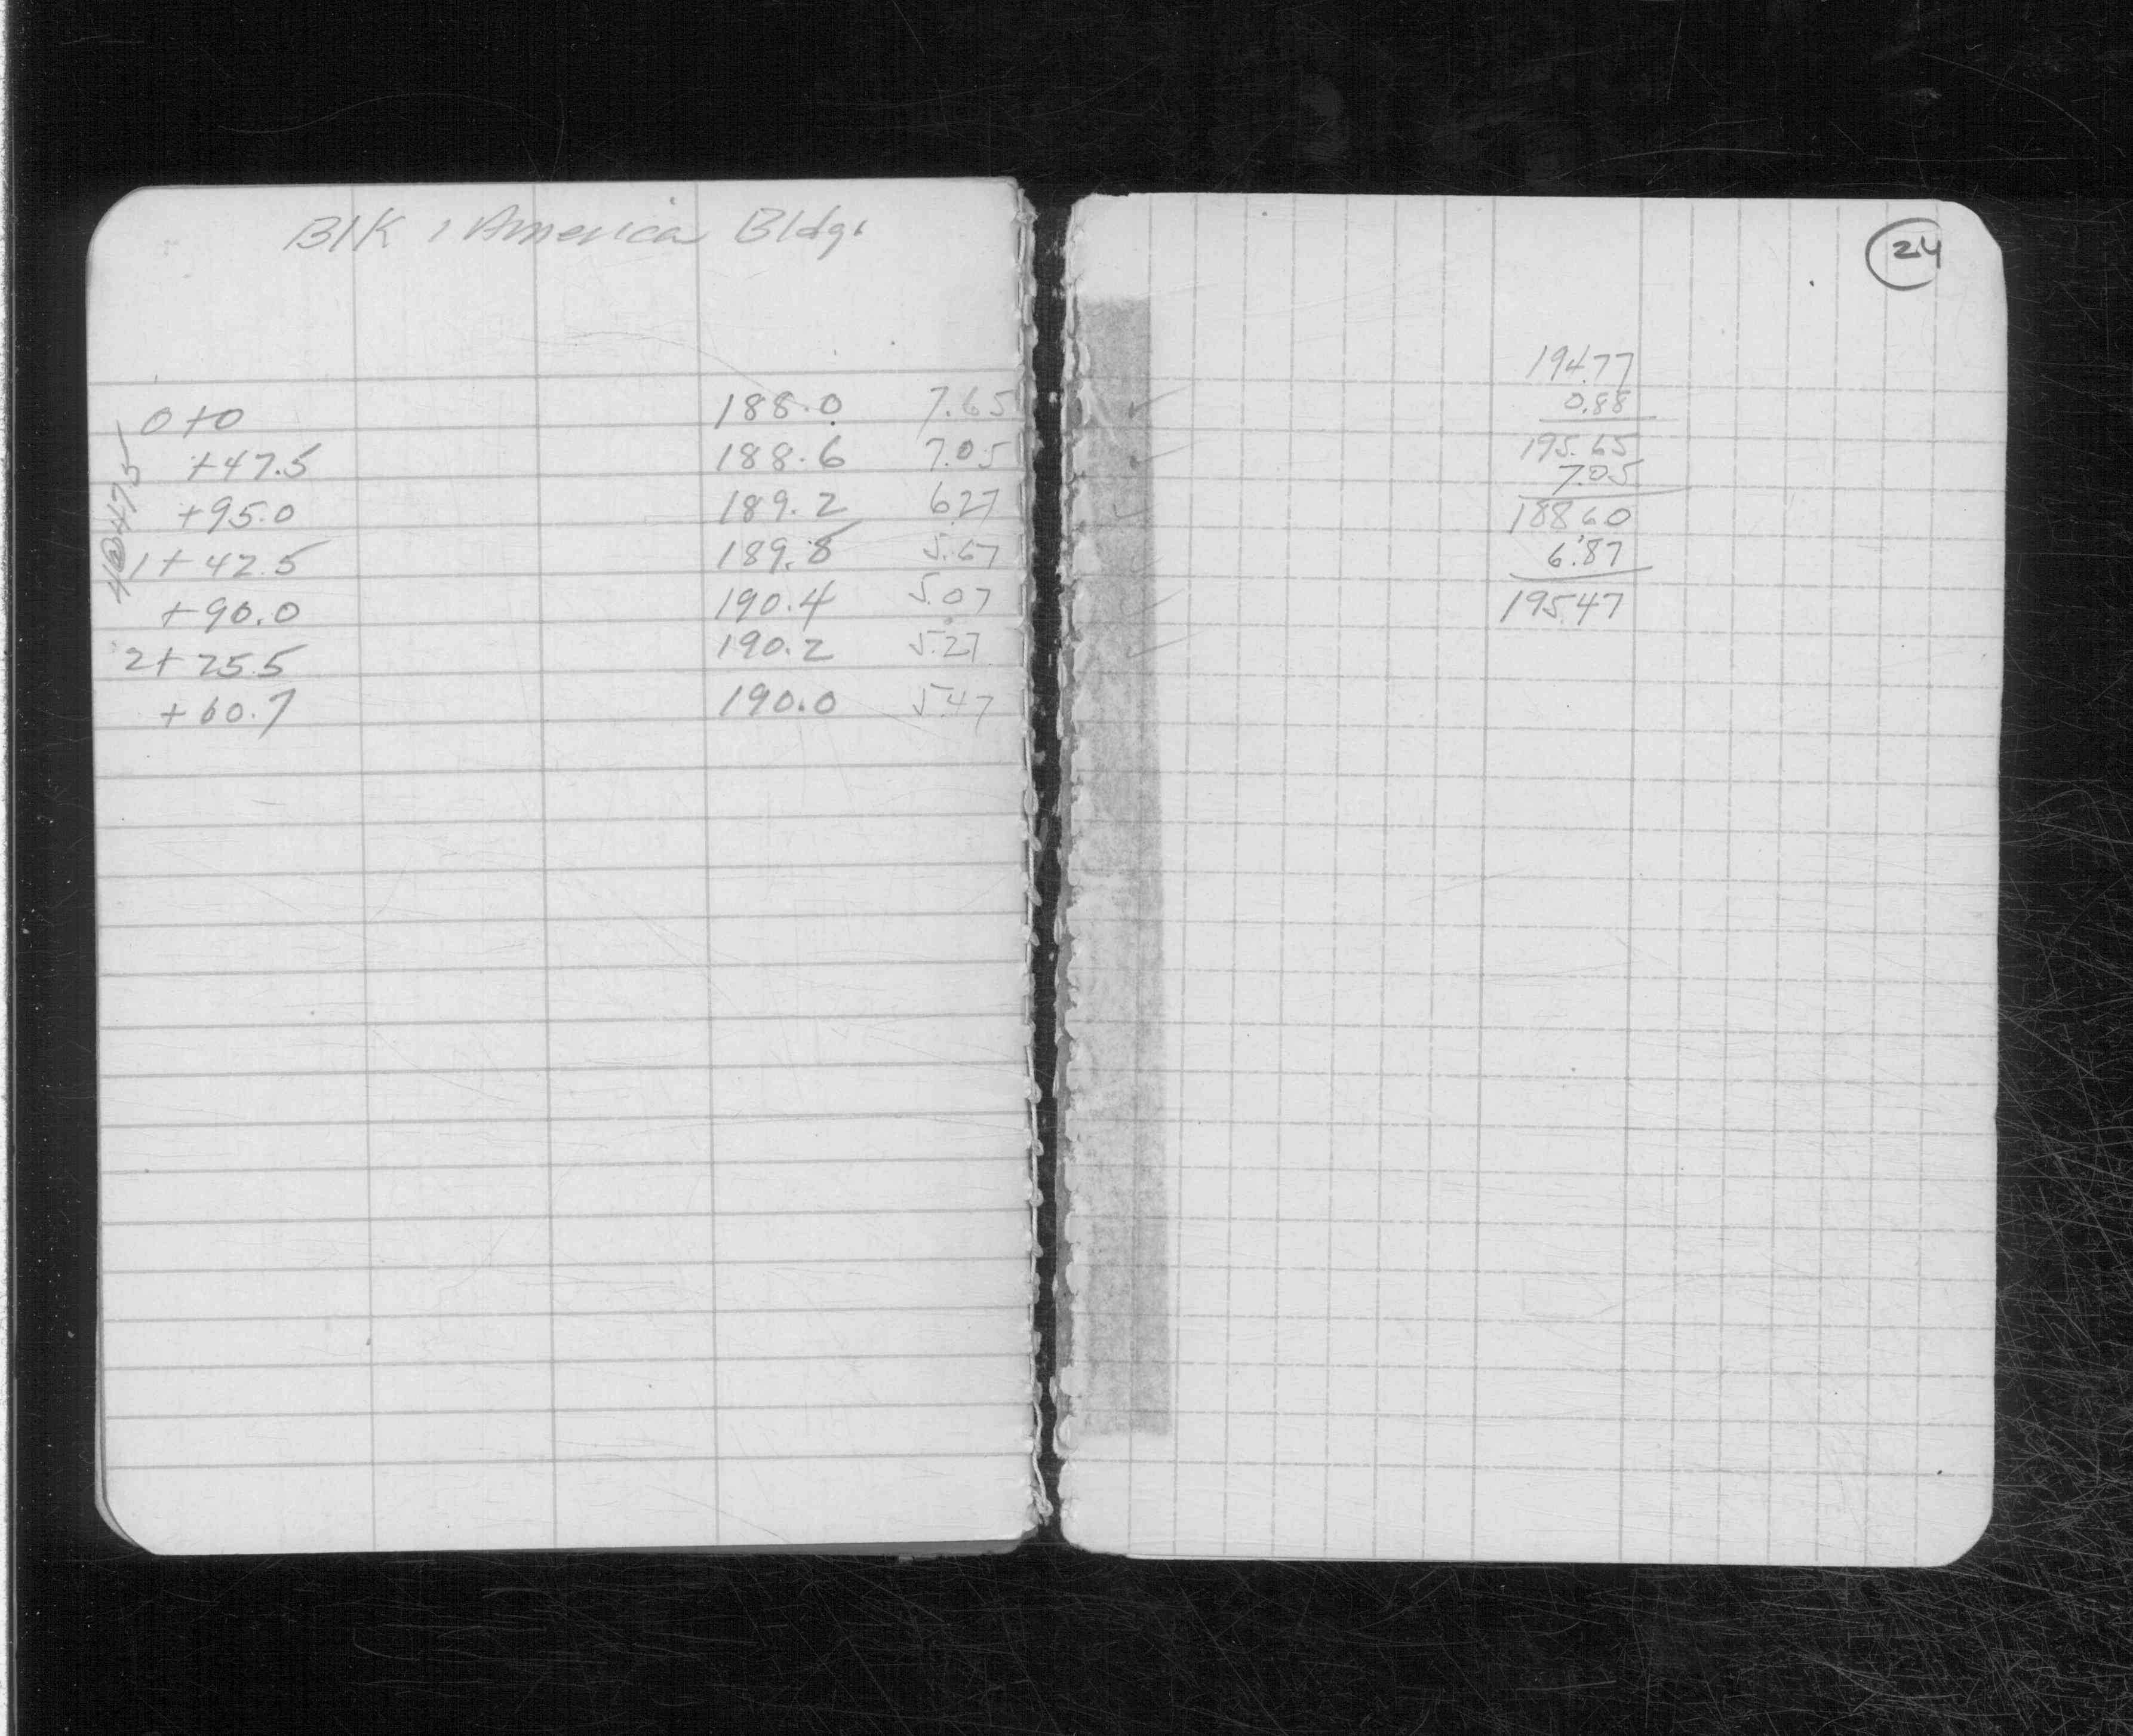 Blk 1 America Bldg.
0+0 188.0 7.65
+47.5 188.6 7.05
+95.0 189.2 6.27
1+42.5 189.8 5.67
+90.0 190.4 5.07
2+25.5 190.2 5.27
+60.7 190.0 5.47
4@47.5
24
194.77
0.88
195.65
7.05
188.60
6.87
195.47